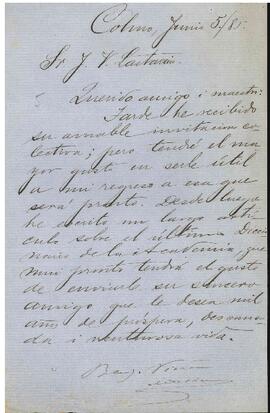 Colmo, Junio 5/85.
Sr J. V. Lastarria.
Querido amigo i maestro:
Tarde he recibido
su amable invitacion co-
lectiva; pero tendré el ma
yor gusto en serle útil
a mi regreso a esa que
será pronto. Desde luego
he escrito un largo artí
culo sobre el último Diccio
nario de la Academia, que
mui pronto tendrá el gusto
de enviarle su sincero
amigo que le desea mil
años de próspera, descansa
da i venturosa vida.
Benj. Vicuña